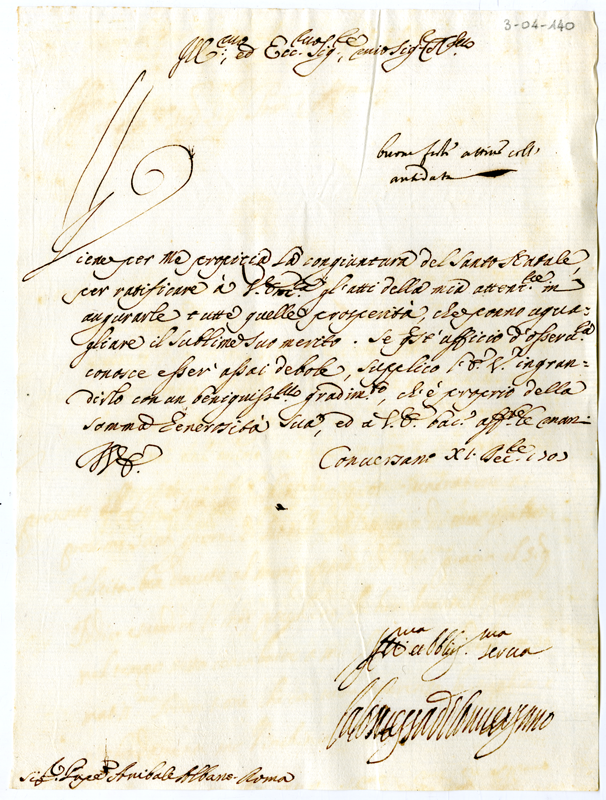 3-04-140
Ill.mo, ed Ecc.mo Sig.re, mio Sig.re
buone feste
antidata
Viene per me propizia la congiuntura del Santo Natale,
per ratificare à V. Em.za gli atti della mia atten.ne in
augurarle tutte quelle prosperità, che ponno agua-
gliare il sublime suo merito. Se quest'afficio d'osseru.za
conosce esser' assai debole, supplico V. E. ingran-
dirlo con un benignis.mo gradim.to, ch'è proprio della
somma Generosità sua, ed a V. E. bacio aff.te le mani
Conversano XI. Dec.bre
serua
La Contessa di Conversano
Sig.r Anibale Albani Roma